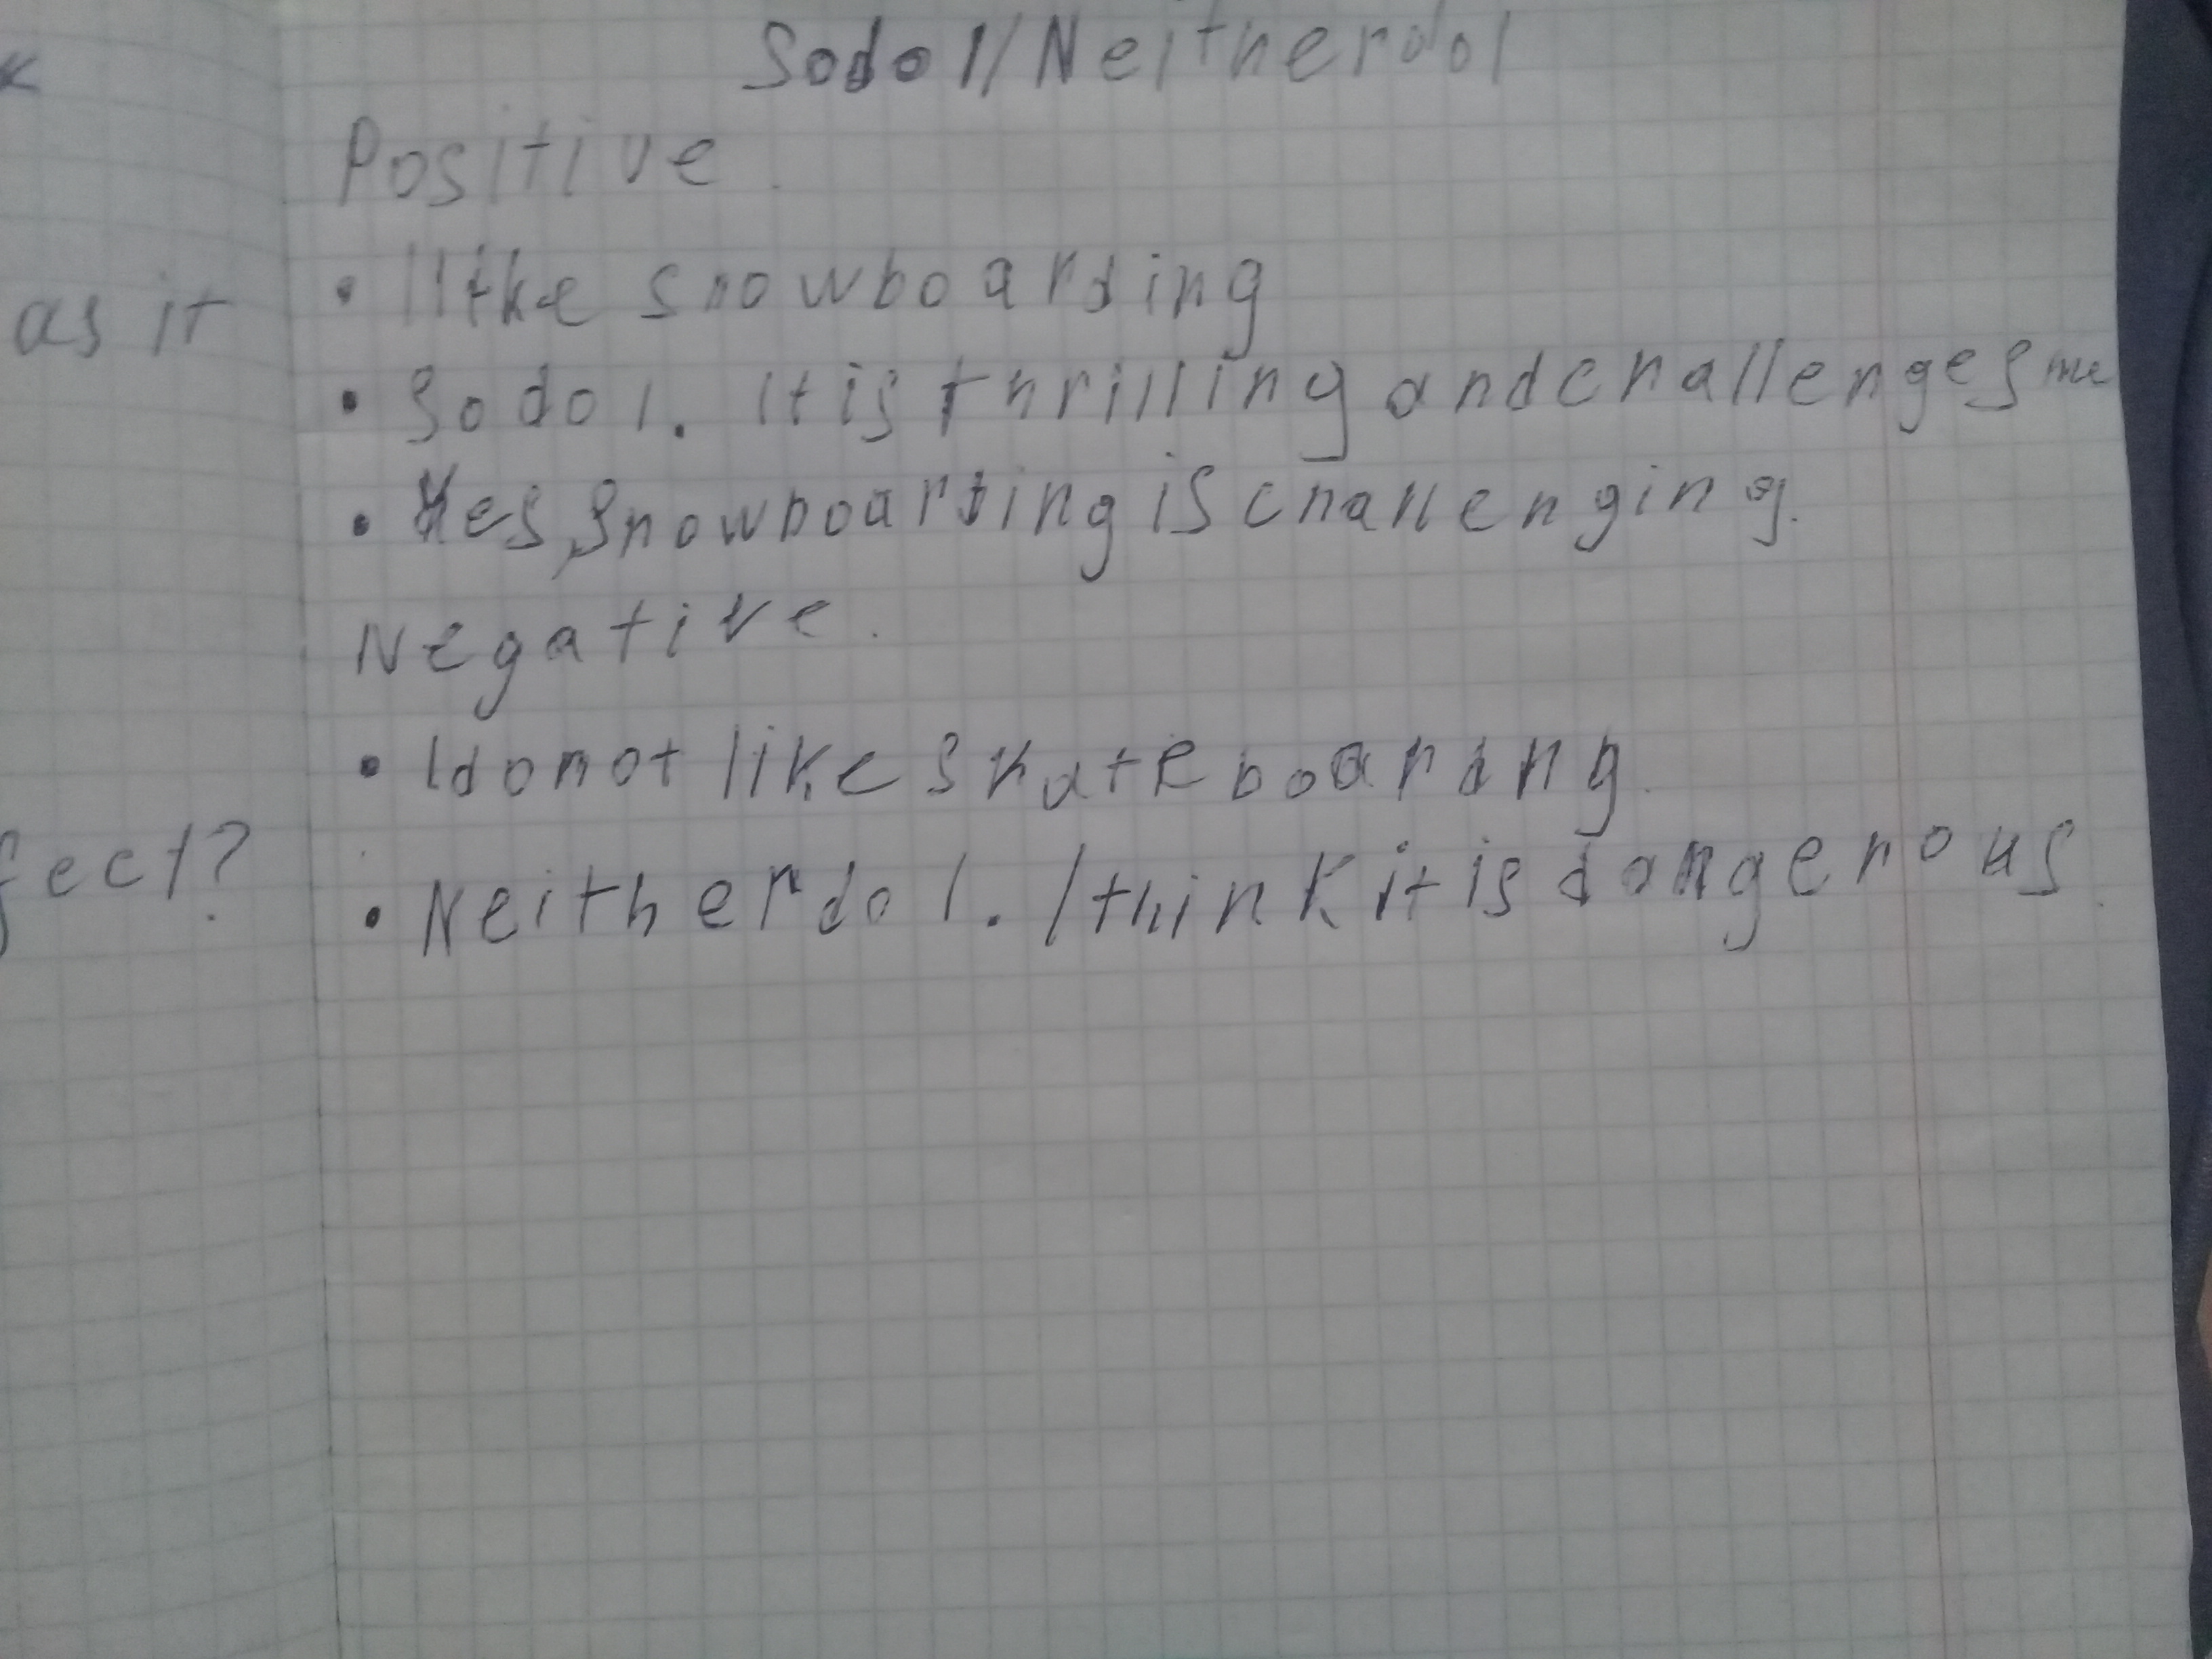 So do I/Neither do I
Positive.
• I like snowboarding
as it
• So do I. It is thrilling and challenges me
• Yes, snowboarding is challenging.
Negative.
• I do not like skateboarding.
fect?
• Neither do I. I think it is dangerous.